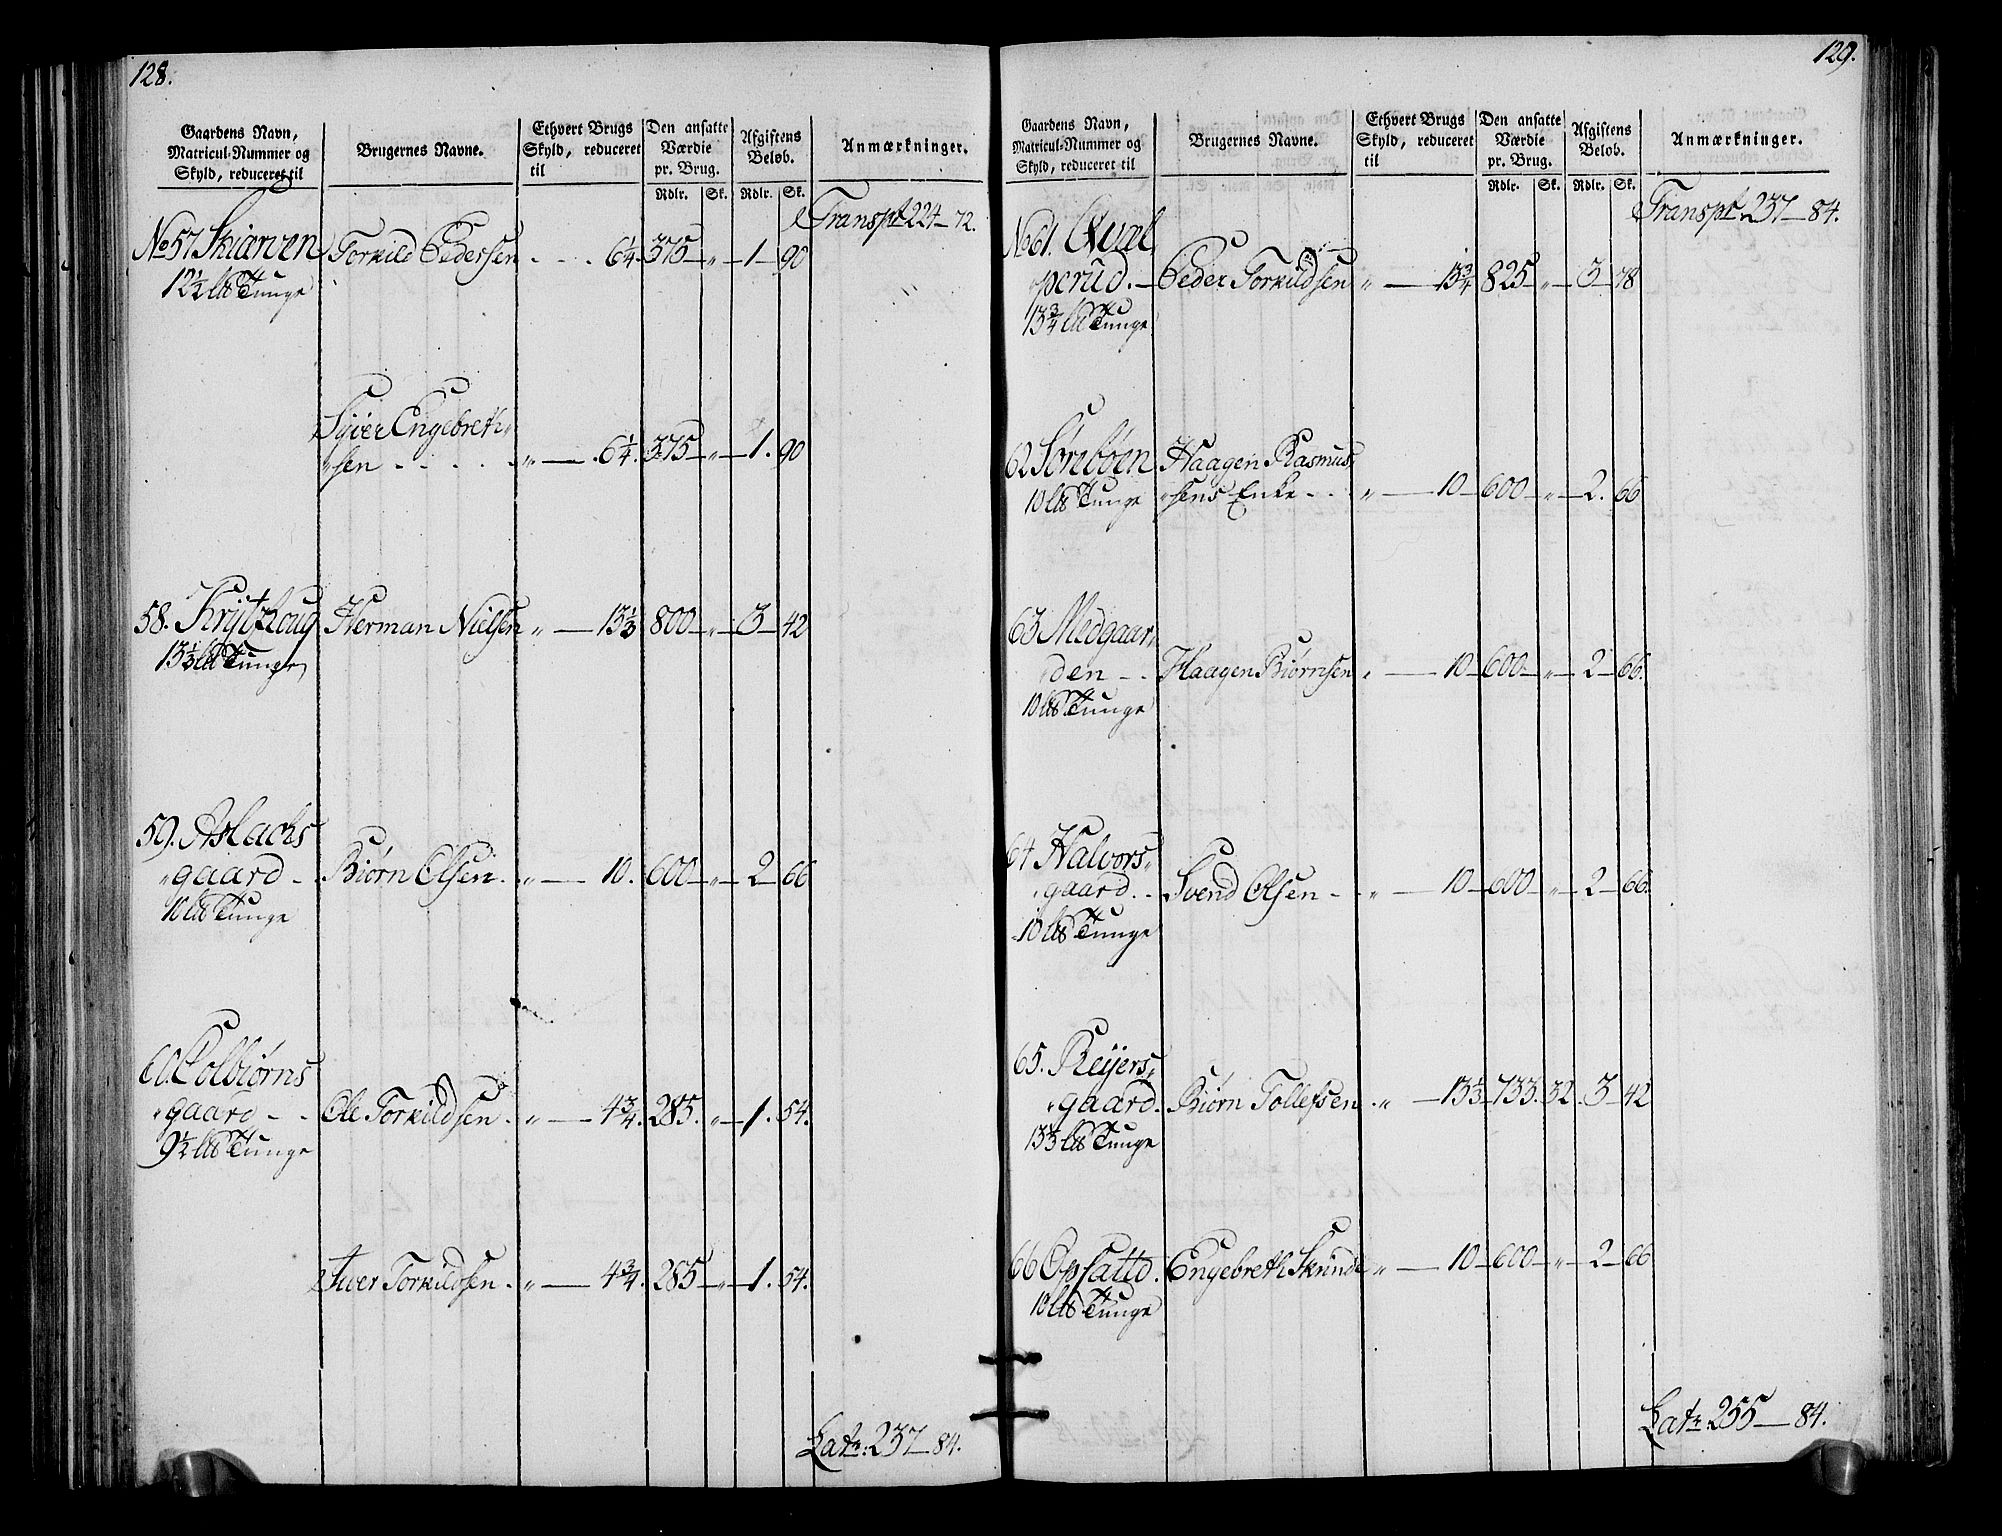 128.
Gaardens Navn, Matricul-Nummer og Skyld, reduceret til
Brugernes Navne.
Ethvert Brugs Skyld, reduceret til
Den ansatte Værdie pr. Brug.
Afgiftens Beløb.
Anmærkninger.
Rdlr. Sk. Rdlr. Sk.
Transpt 224 - 72.
No 57 Skiærven Torkild Pedersen . . . 6¼ 375 „ 1 90
12½ lb Tunge
Syver Engebreth„
„sen . . . . . „ 6¼. 375 „ 1. 90
58. Krytzhoug Herman Nielsen „ 13⅓ 800 „ 3 42
13⅓ lb Tunge
59. Aslachs
„gaard - . Biørn Olsen . „ 10. 600 „ 2 66
10 lb Tunge
60. Colbiørns
„gaard - - Ole Torkildsen . „ 4¾. 285. „ 1. 54.
9½ lb Tunge
Iver Torkildsen . „ 4¾. 285 „ 1. 54.
Latr: 237 - 84.
129.
Gaardens Navn, Matricul-Nummer og Skyld, reduceret til
Brugernes Navne.
Ethvert Brugs Skyld, reduceret til
Den ansatte Værdie pr. Brug.
Afgiftens Beløb.
Anmærkninger.
Rdlr. Sk. Rdlr. Sk.
Transpt. 237 - 84.
No 61. Qvæl
„perud. Peder Torkildsen „ 13¾ 825 „ 3 78
13¾ lb Tunge
62 Sørebøen Haagen Rasmus„
10 lb Tunge „sens Enke . . „ 10 600 „ 2. 66
63 Medgaar„
„den - . Haagen Biørnsen „ 10 600 „ 2 66.
10 lb Tunge
64 Halvors„
„gaard . . Svend Olsen - „ 10 600 „ 2 66.
10 lb Tunge
65. Reijers„
„gaard. Biørn Tollefsen . „ 13⅓ 733. 32. 3 42
13⅓ lb Tunge
66 Opsattd. Engebreth Skrinde „ 10 600 „ 2 66
10 lb Tunge
Latr: 255 - 84.